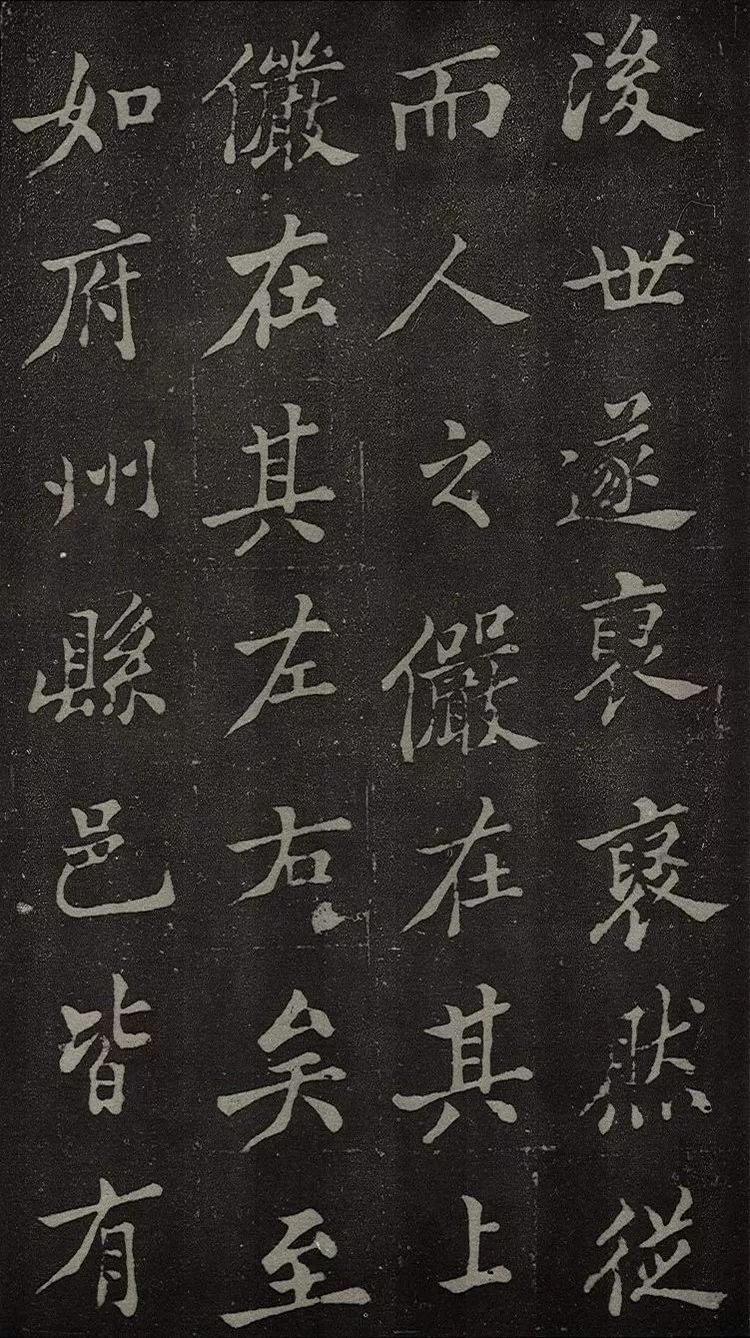 後世遂裒裒然從
而人之儼在其上
儼在其左右矣至
如府州縣邑皆有